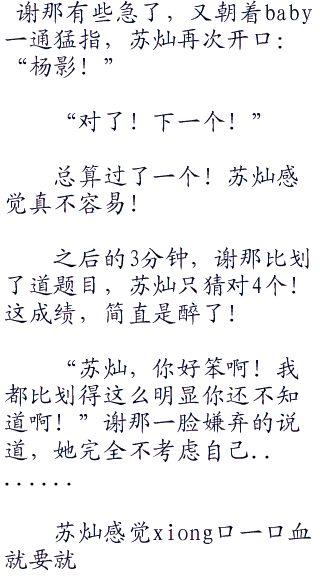 谢那有些急了，又朝着baby
一通猛指，苏灿再次开口：
“杨影！”
“对了！下一个！”
总算过了一个！苏灿感
觉真不容易！
之后的3分钟，谢那比划
了道题目，苏灿只猜对4个！
这成绩，简直是醉了！
“苏灿，你好笨啊！我
都比划得这么明显你还不知
道啊！”谢那一脸嫌弃的说
道，她完全不考虑自己..
......
苏灿感觉xiong口一口血
就要就